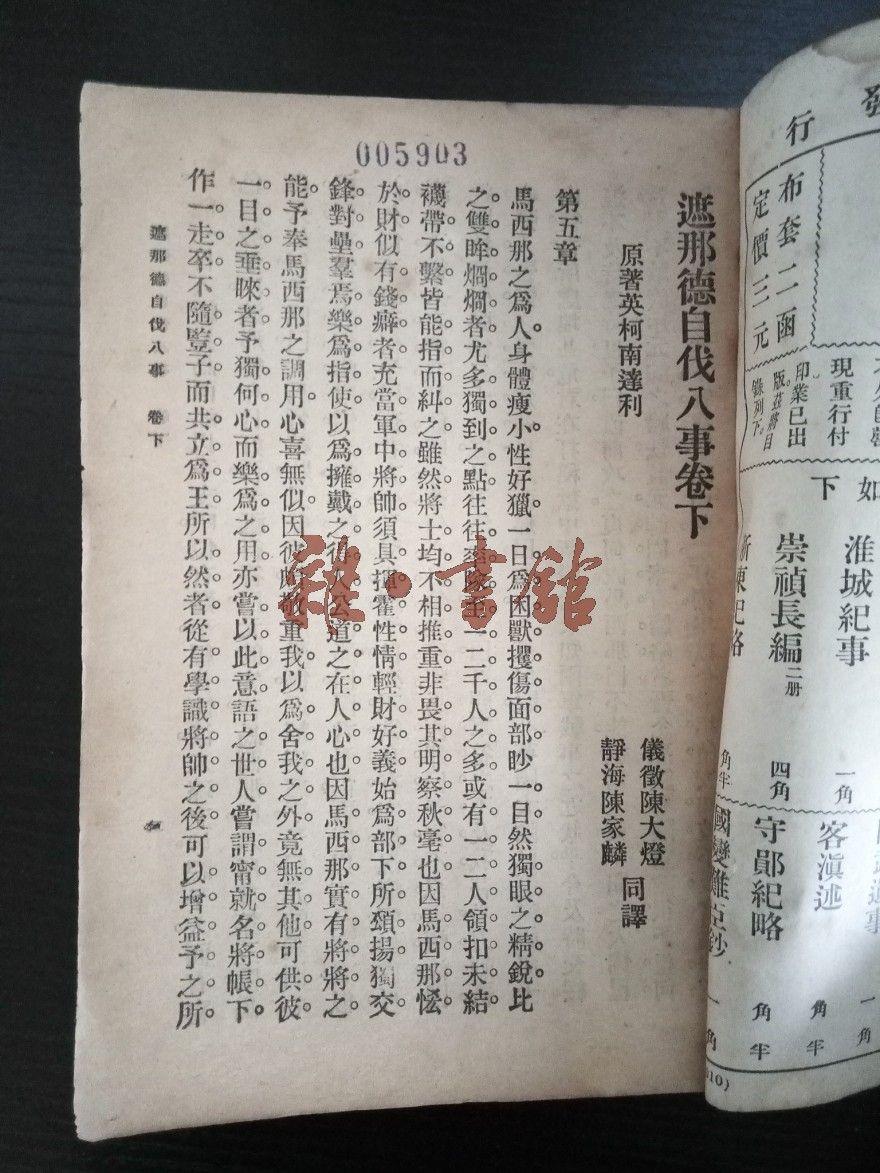 005903
遮那德自伐八事卷下
原著英柯南達利
儀徵陳大燈
靜海陳家麟
同譯
第五章
馬西那之爲人身體瘦小性好獵一日爲困獸攫傷面部眇一目然獨眼之精銳比
之雙眸烱烱者尤多獨到之點往往率隊至一二千人之多或有一二人領扣未結
襪帶不繫皆能指而糾之雖然將士均不相推重非畏其明察秋毫也因馬西那慳
於財似有錢癖者充當軍中將帥須具揮霍性情輕財好義始爲部下所頌揚獨交
鋒對壘羣焉樂爲指使以爲擁戴之後人公道之在人心也因馬西那實有將將之
能予奉馬西那之調用心喜無似因彼頗敬重我以爲舍我之外竟無其他可供彼
一目之垂睞者予獨何心而樂爲之用亦嘗以此意語之世人嘗謂甯就名將帳下
作一走卒不隨豎子而共立爲王所以然者從有學識將帥之後可以增益予之所
遮那德自伐八事 卷下
雜·書館
發
行
布套二函
定價三元
現重行付
印業已出
版茲將目
錄列下
如
下
淮城紀事
一角
崇禎長編二册
四角
紀略
角半
客滇述
角半
守鄖紀略
一角半
國變難臣鈔
一角
10)